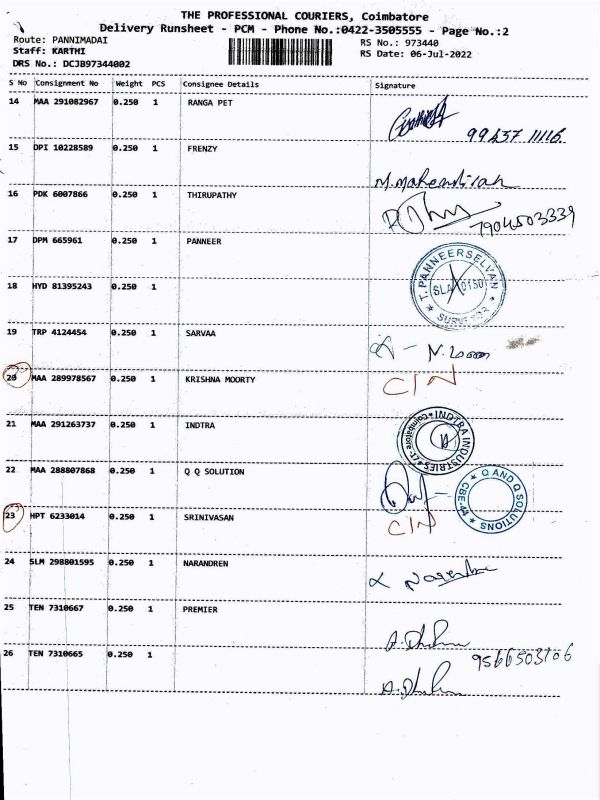 THE PROFESSIONAL COURIERS, Coimbatore
Delivery Runsheet - PCM - Phone No.:0422-3505555 - Page No.:2
Route: PANNIMADAI
RS No.: 973440
Staff: KARTHI
RS Date: 06-Jul-2022
DRS No.: DCJB97344002
S No Consignment No Weight PCS Consignee Details Signature
14 MAA 291082967 0.250 1 RANGA PET
99437 11116
15 DPI 10228589 0.250 1 FRENZY
16 PDK 6007866 0.250 1 THIRUPATHY
7904503339
17 DPM 665961 0.250 1 PANNEER
T. PANNEERSELVAN
18 HYD 81395243 0.250 1
SURVEYOR
19 TRP 4124454 0.250 1 SARVAA
20 MAA 289978567 0.250 1 KRISHNA MOORTY
CIN
21 MAA 291263737 0.250 1 INDTRA
INDTRA INDUSTRIES
22 MAA 288807868 0.250 1 Q Q SOLUTION
Q AND Q SOLUTIONS
CBE-44
23 HPT 6233014 0.250 1 SRINIVASAN
CIN
24 SLM 298801595 0.250 1 NARANDREN
25 TEN 7310667 0.250 1 PREMIER
26 TEN 7310665 0.250 1
9566503106